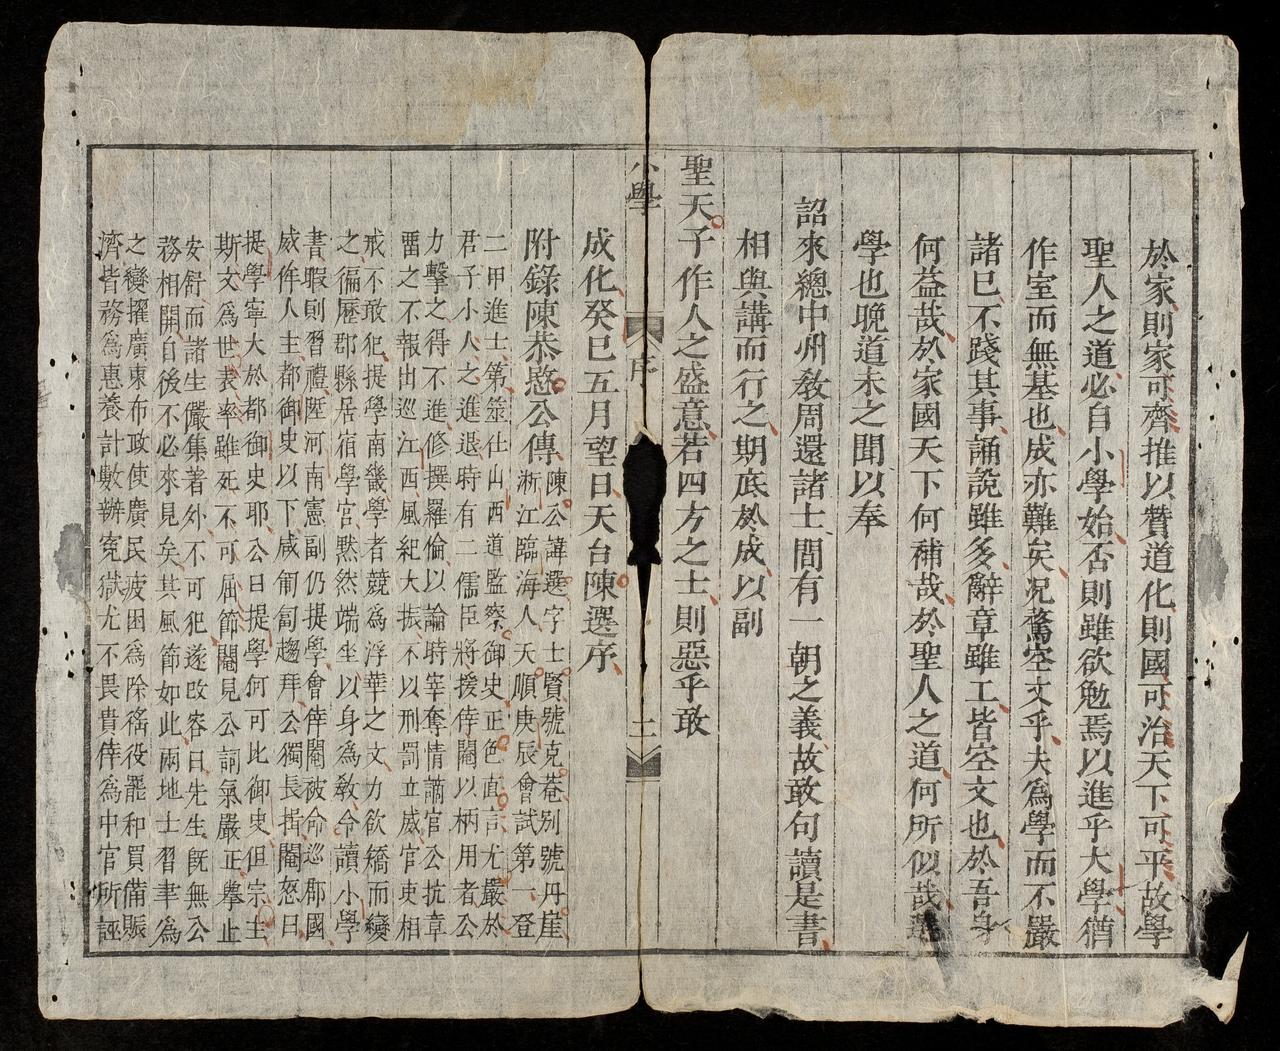 於家則家可齊推以贊道化則國可治天下可平故學
聖人之道必自小學始否則雖欲勉焉以進乎大學猶
作室而無基也成亦難矣况騖空文乎夫為學而不嚴
諸己不踐其事誦說雖多辭章雖工皆空文也於吾身
何益哉於家國天下何補哉於聖人之道何所似哉
學也晚道未之聞以奉
詔來總中州敎周還諸士間有一朝之義故敢句讀是書
相與講而行之期底於成以副
聖天子作人之盛意若四方之士則惡乎敢
小學
序
二
成化癸巳五月望日天台陳選序
附錄陳恭愍公傳
陳公諱選字士賢號克菴別號丹崖
浙江臨海人天順庚辰會試第一登
二甲進士第筮仕山西道監察御史正色直言尤嚴於
君子小人之進退時有二儒臣將援倖閹以柄用者公
力擊之得不進修撰羅倫以論時宰奪情謫官公抗章
雷之不報出巡江西風紀大振不以刑罰立威官吏相
戒不敢犯提學南畿學者競為浮華之文力欲矯而變
之徧歷郡縣居宿學宮默然端坐以身為敎令讀小學
書暇則習禮陞河南憲副仍提學會倖閹被命巡郡國
威侔人主都御史以下咸匍匐趨拜公獨長揖閹怒曰
提學寧大於都御史耶公曰提學何可比御史但宗主
斯文為世表率雖死不可屈節閹見公詞氣嚴正舉止
安舒而諸生儼集著外不可犯遂改容曰先生旣無公
務相開自後不必來見矣其風節如此兩地士習聿為
之變擢廣東布政使廣民疲困為除徭役罷和買備賑
濟皆務為惠養計數辦寃獄尤不畏貴倖為中官所誣